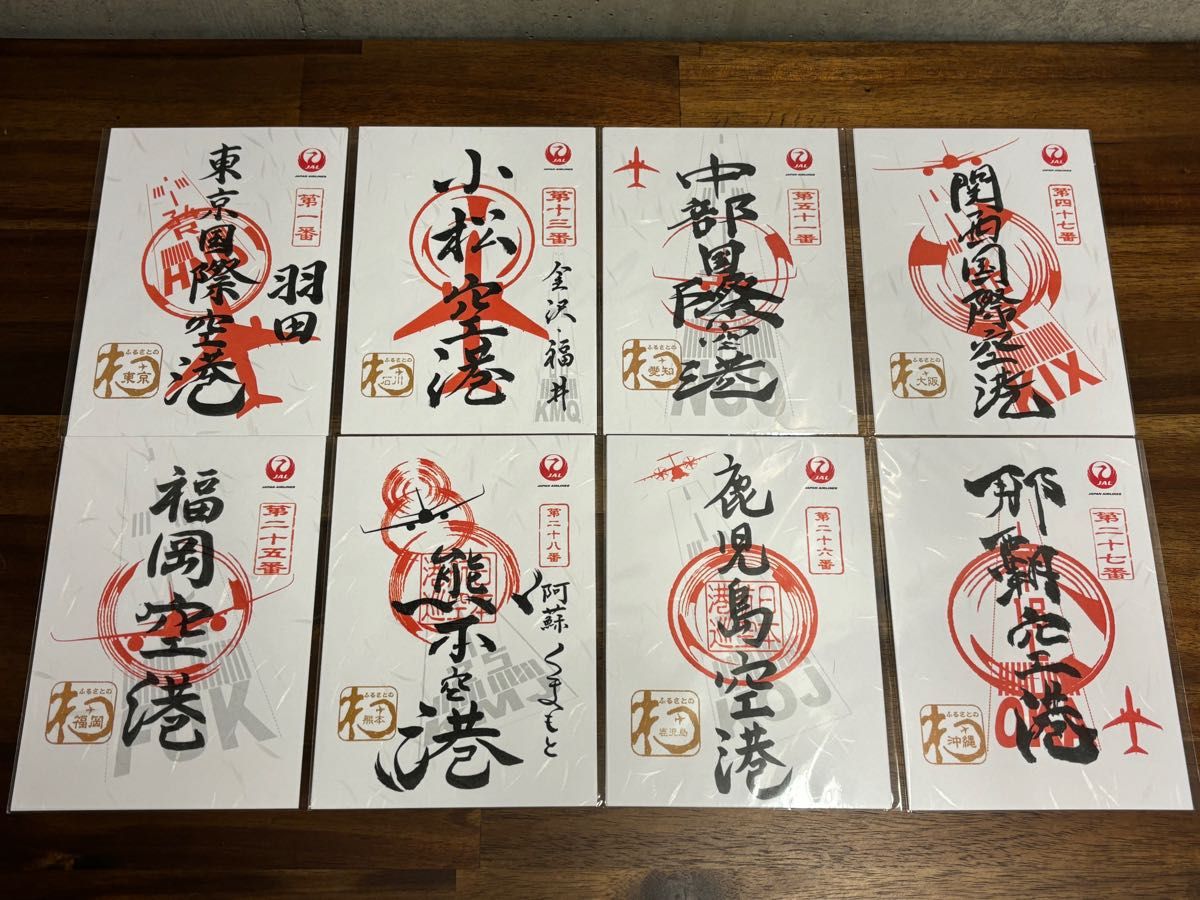 東京国際空港
羽田
JAL
JAPAN AIRLINES
第一番
ふるさとの
東京
小松空港
金沢・福井
JAL
JAPAN AIRLINES
第十三番
ふるさとの
石川
KMQ
中部国際空港
JAL
JAPAN AIRLINES
第五十一番
ふるさとの
愛知
NGO
関西国際空港
JAL
JAPAN AIRLINES
第四十七番
ふるさとの
大阪
KIX
福岡空港
JAL
JAPAN AIRLINES
第二十五番
ふるさとの
福岡
FUK
熊本空港
阿蘇くまもと
JAL
JAPAN AIRLINES
第二十八番
ふるさとの
熊本
鹿児島空港
JAL
JAPAN AIRLINES
第二十六番
ふるさとの
鹿児島
那覇空港
JAL
JAPAN AIRLINES
第二十七番
ふるさとの
沖縄